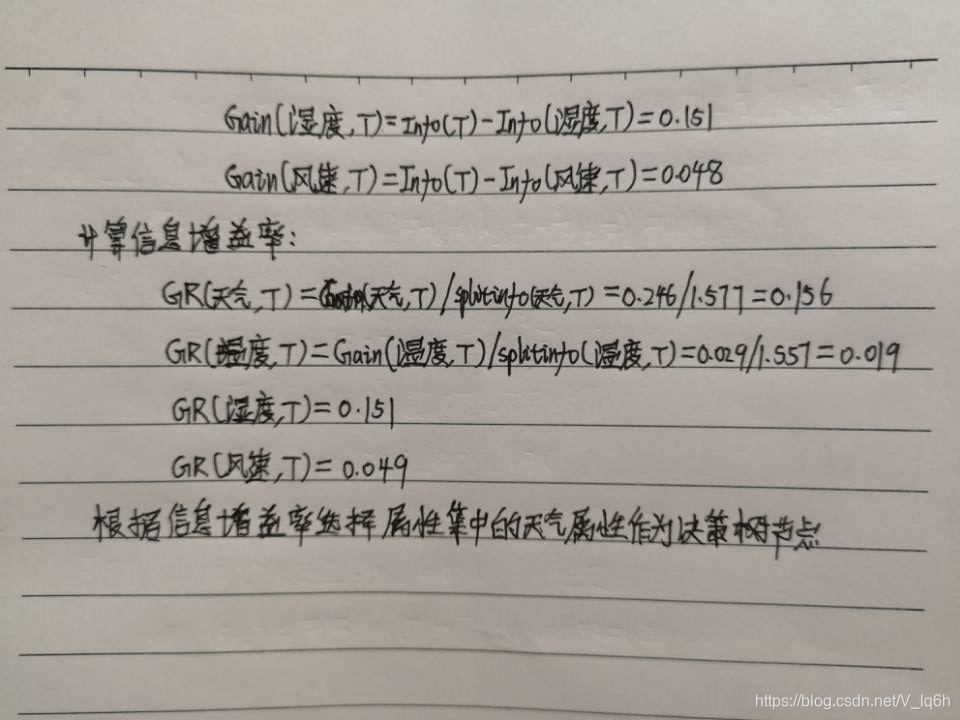 Gain(湿度,T)=Info(T)-Info(湿度,T)=0.151
Gain(风速,T)=Info(T)-Info(风速,T)=0.048
计算信息增益率:
GR(天气,T)=(天气,T)/splitinfo(天气,T)=0.246/1.577=0.156
GR(温度,T)=Gain(温度,T)/splitinfo(温度,T)=0.029/1.557=0.019
GR(湿度,T)=0.151
GR(风速,T)=0.049
根据信息增益率选择属性集中的天气属性作为决策树节点
https://blog.csdn.net/V_lq6h